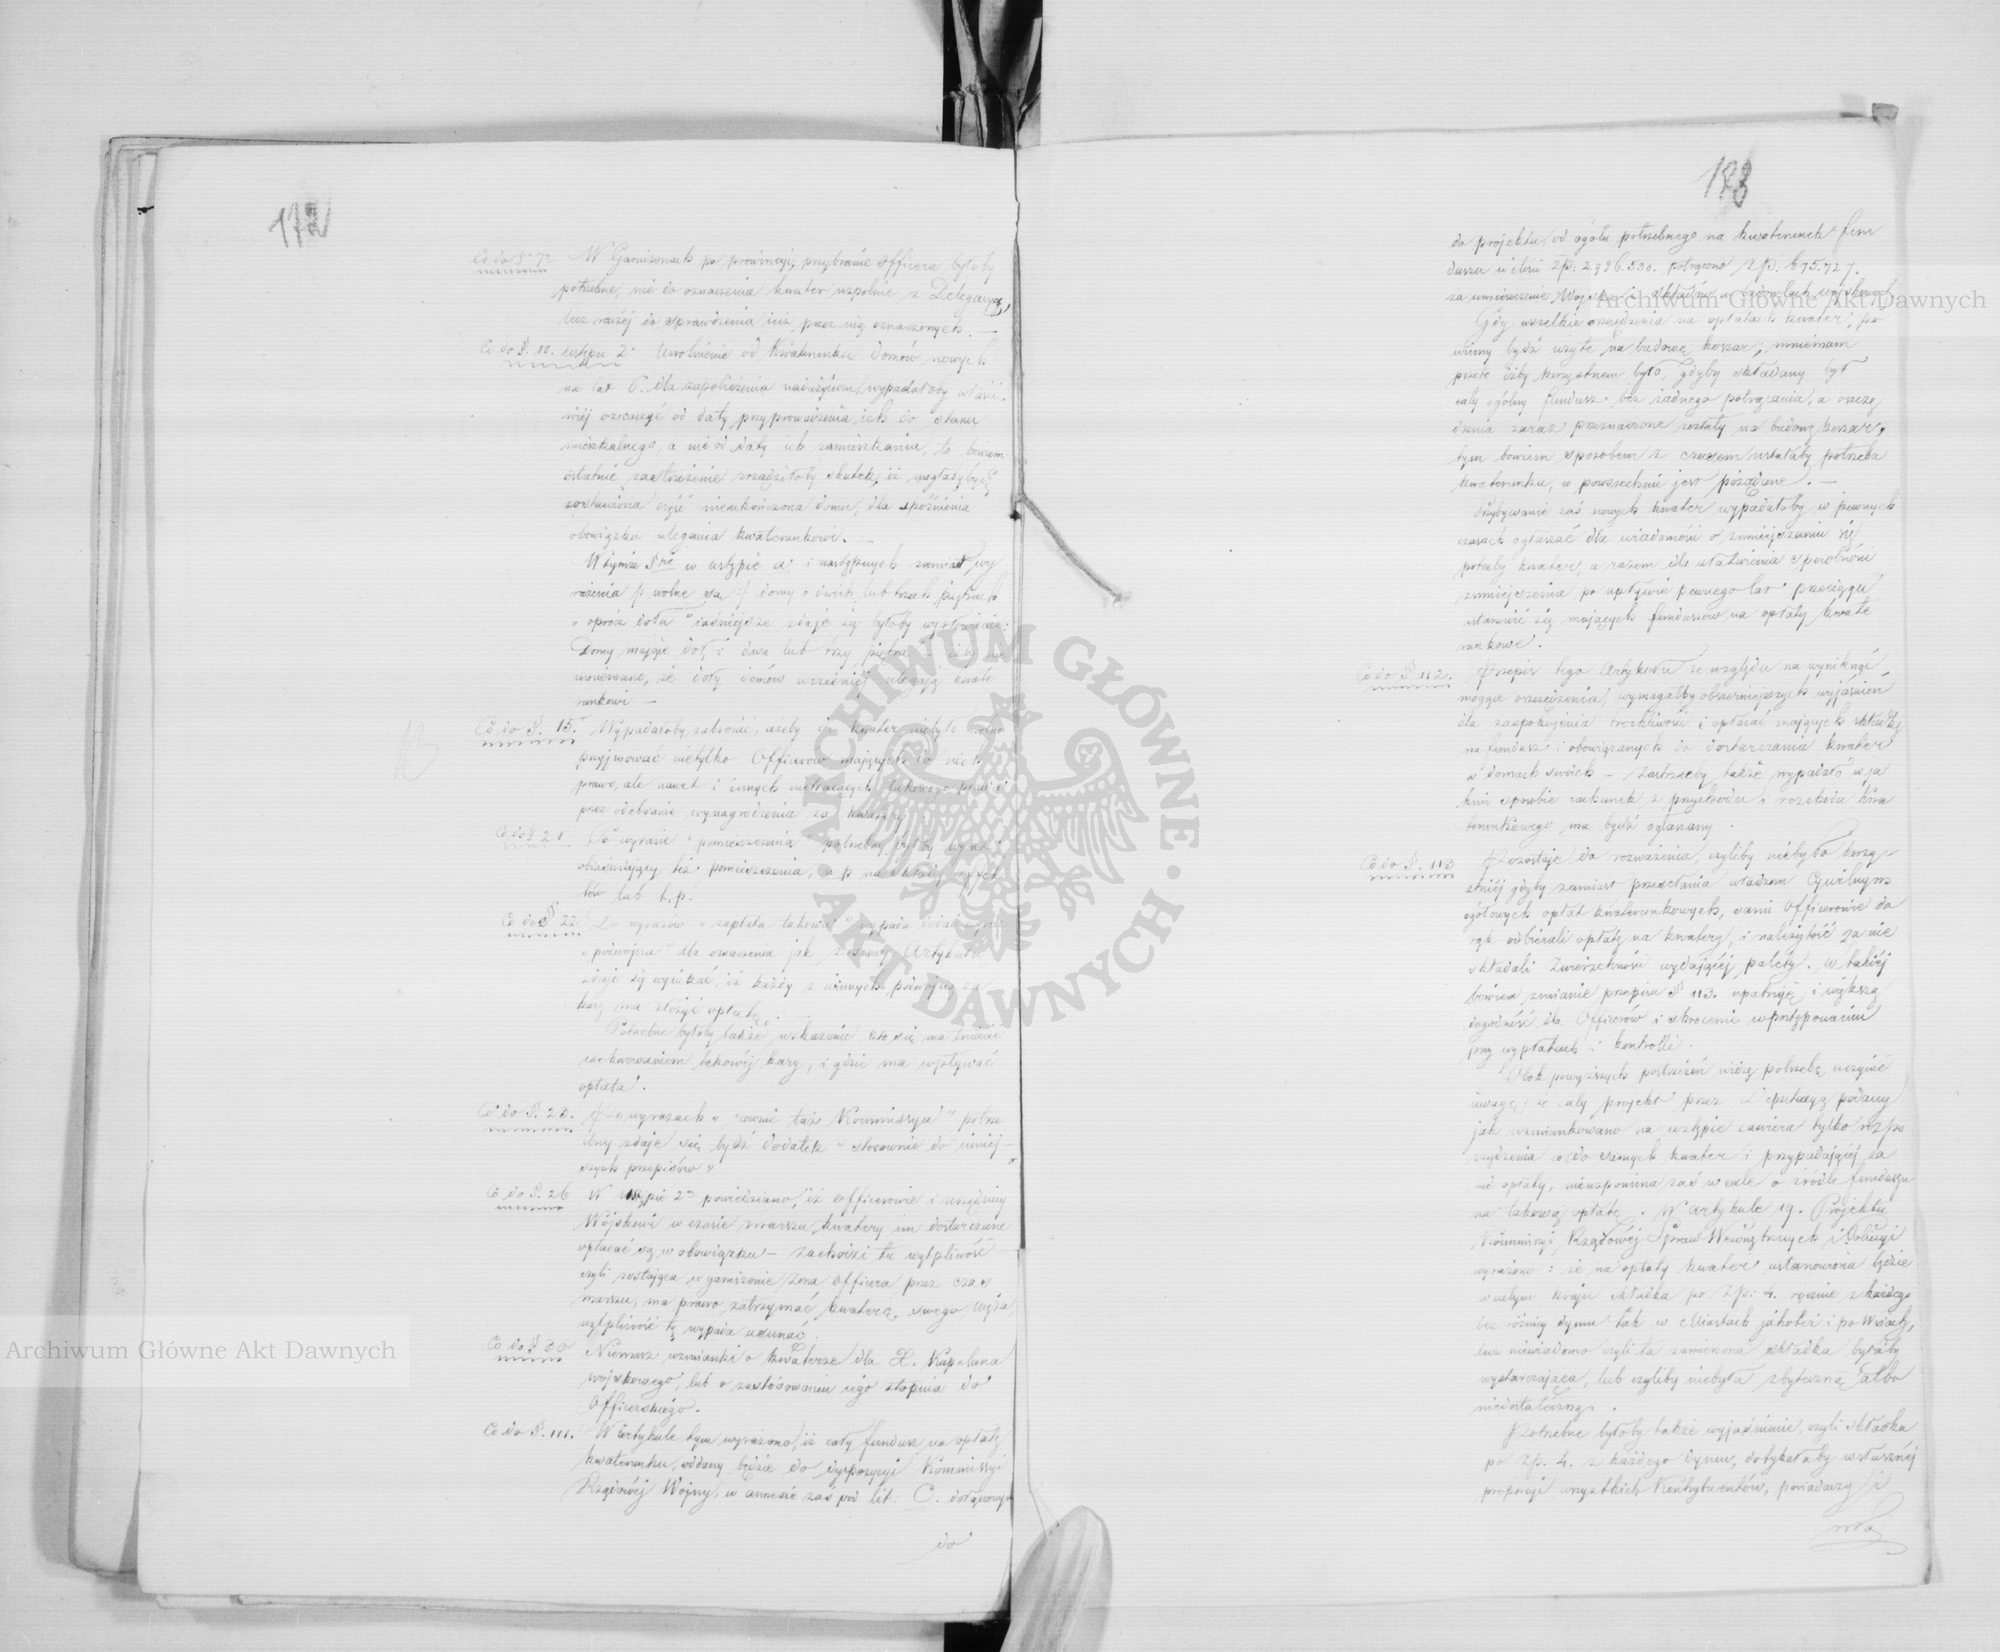 172
Co do §. 7. W Garnizonach po prowincyi, przybranie officera byłoby
potrzebne, nie do oznaczenia kwater wspólnie z Delegacyą,
lecz raczéj do sprawdzenia już przez nią oznaczonych. —
Co do §. 10. ustępu 2. Uwolnienie od Kwaterunku domów nowych
na lat 6. dla zapobieżenia nadużyciom, wypadałoby właści-
wiéj oznaczyć od daty przyprowadzenia ich do stanu
mieszkalnego, a nie od daty ich zamieszkania, to bowiem
ostatnie zastrzeżenie zrządziłoby skutek, iż mogłaby być
zostawiona część niewykończona domu, dla spóźnienia
obowiązku ulegania kwaterunkowi. —
W tymże §fie w ustępie a. i następnych zamiast wy
rażenia /: wolne są :/ domy o dwóch lub trzech piętrach
„oprócz dołu" jaśniejsze zdaje się byłoby wysłowienie:
Domy mające dół i dwa lub trzy piętra — żeby nie
mniemano, że doły domów wcześniéj ulegają kwate
runkowi —
Co do §. 15. Wypadałoby zabronić, ażeby do kwater niebyło wolno
przyjmować nietylko Officerów mających do nich
prawo, ale nawet i innych niemających takowego prawa
przez odebranie wynagrodzenia za kwaterę
Co do § 21. Po wyrazie „pomieszczenia" potrzebny byłby wyraz
objaśniający też pomieszczenia, n p na składy effek
tów lub t. p.
Co do § 22. Do wyrazów „zapłata takowa" wypada dodać wyraz
„podwójna" dla oznaczenia jak z osnowy Artykułu
zdaje się wynikać, iż każdy z winnych podwójną za
karę ma złożyć opłatę.
Potrzebne byłoby także wskazanie kto się ma trudnić
exekwowaniem takowéj kary, i gdzie ma wpływać
opłata.
Co do §. 23. Po wyrazach „ równie taż Kommissya" potrze
bny zdaje się bydź dodatek „stosownie do niniej-
szych przepisów"
Co do §. 26 W Ustępie 2m powiedziano, iż officerowie i urzędnicy
Wojskowi w czasie marszu, kwatery im dostarczane
opłacać są w obowiązku — zachodzi tu wątpliwość
czyli zostająca w garnizonie żona officera przez czas
marszu, ma prawo zatrzymać kwaterę swego męża,
wątpliwość tę wypada usunąć.
Co do § 30 Niemasz wzmianki o kwaterze dla X. Kapelana
wojskowego, lub o zastosowaniu jego stopnia do
Officerskiego.
Co do §. 111. W artykule tym wyrażono, iż cały fundusz na opłatę
kwaterunku, oddany będzie do dyspozycyi Kommissyi
Rządowéj Wojny, w annexie zaś pod lit: C. dołączonym
do
173
do projektu, od ogółu potrzebnego na kwaterunek fun
duszu w ilości Zp: 2,786.530. potrącono Zp: 675.727.
za umieszczenie Wojska i składów w budowlach wojskowych
Gdy wszelkie oszczędzenia na opłatach kwater, po
winny bydź użyte na budowę koszar; mniemam
przeto iżby korzystnem było, gdyby składany był
cały ogólny fundusz bez żadnego potrącania, a oszczę
dzenia zaraz przeznaczone zostały na budowę koszar,
tym bowiem sposobem z czasem ustałaby potrzeba
kwaterunku, co powszechnie jest pożądane. —
Przybywanie zaś nowych kwater wypadałoby w pewnych
czasach ogłaszać dla wiadomości o zmniejszaniu się
potrzeby kwater, a razem dla ułatwienia sposobności
zmniejszenia po upływie pewnego lat przeciągu
ustanowić się mających funduszów na opłaty kwate
runkowe.
Co do §. 112. Przepis tego Artykułu ze względu na wyniknąć
mogące oszczędzenia, wymagałby obszerniejszych wyjaśnień
dla zaspokojenia troskliwości i opłacać mających składkę
na fundusz i obowiązanych do dostarczania kwater
w domach swoich — Zastrzedz także wypadało w ja
kim sposobie rachunek z przychodu i rozchodu kwa
terunkowego ma bydź ogłaszany.
Co do §. 113 Pozostaje do rozważenia, czyliby niebyło korzy-
stniéj gdyby zamiast przesełania władzom Cywilnym
ogółowych opłat kwaterunkowych, sami Officerowie do
rąk odbierali opłatę na kwatery, i należytość za nie
składali Zwierzchności wydającéj palety. w takiéj
bowiem zmianie przepisu § 113. upatruję i większą
dogodność dla Officerów i skrócenie w postępowaniu
przy wypłatach i kontrolli.
Obok powyższych postrzeżeń widzę potrzebę uczynić
uwagę: że cały projekt przez Deputacyą podany
jak wzmiankowano na wstępie zawiera tylko rozpo
rządzenia co do samych kwater i przypadającéj za
nie opłaty, niewspomina zaś wcale o źródle funduszu
na takową opłatę. W artykule 19. Projektu
Kommissyi Rządowéj Spraw Wewnętrznych i Policyi
wyrażono: że na opłaty kwater ustanowiona będzie
w całym kraju składka po Zp: 4. rocznie z każdego
bez różnicy dymu tak w Miastach jakoteż i po Wsiach,
lecz niewiadomo czyli ta zamierzona składka byłaby
wystarczająca, lub czyliby niebyła zbyteczną albo
niedostateczną.
Potrzebne byłoby także wyjaśnienie, czyli składka
po Zp. 4. z każdego dymu, dotykałaby w słusznéj
proporcyi wszystkich Kontrybuentów, posiadaczy i
Archiwum Główne Akt Dawnych
Archiwum Główne Akt Dawnych
ARCHIWUM GŁÓWNE AKT DAWNYCH